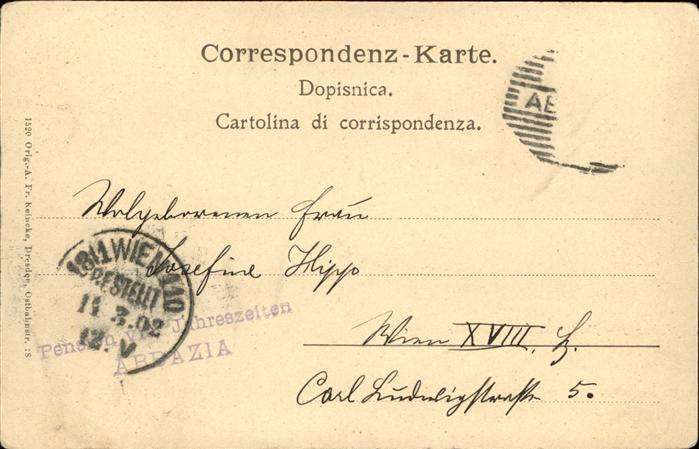 Correspondenz-Karte.
Dopisnica.
Cartolina di corrispondenza.
AB
1520 Orig.-A. Fr. Reincke, Dresden, Ostbahnstr. 18
Wolgeborenen Frau
Josefine Hippo
Wien XVIII,
Carl Ludwigstraße 5.
18/1 WIEN 110
BESTELLT
11 3.02
12. V
Pension Jahreszeiten
ABBAZIA